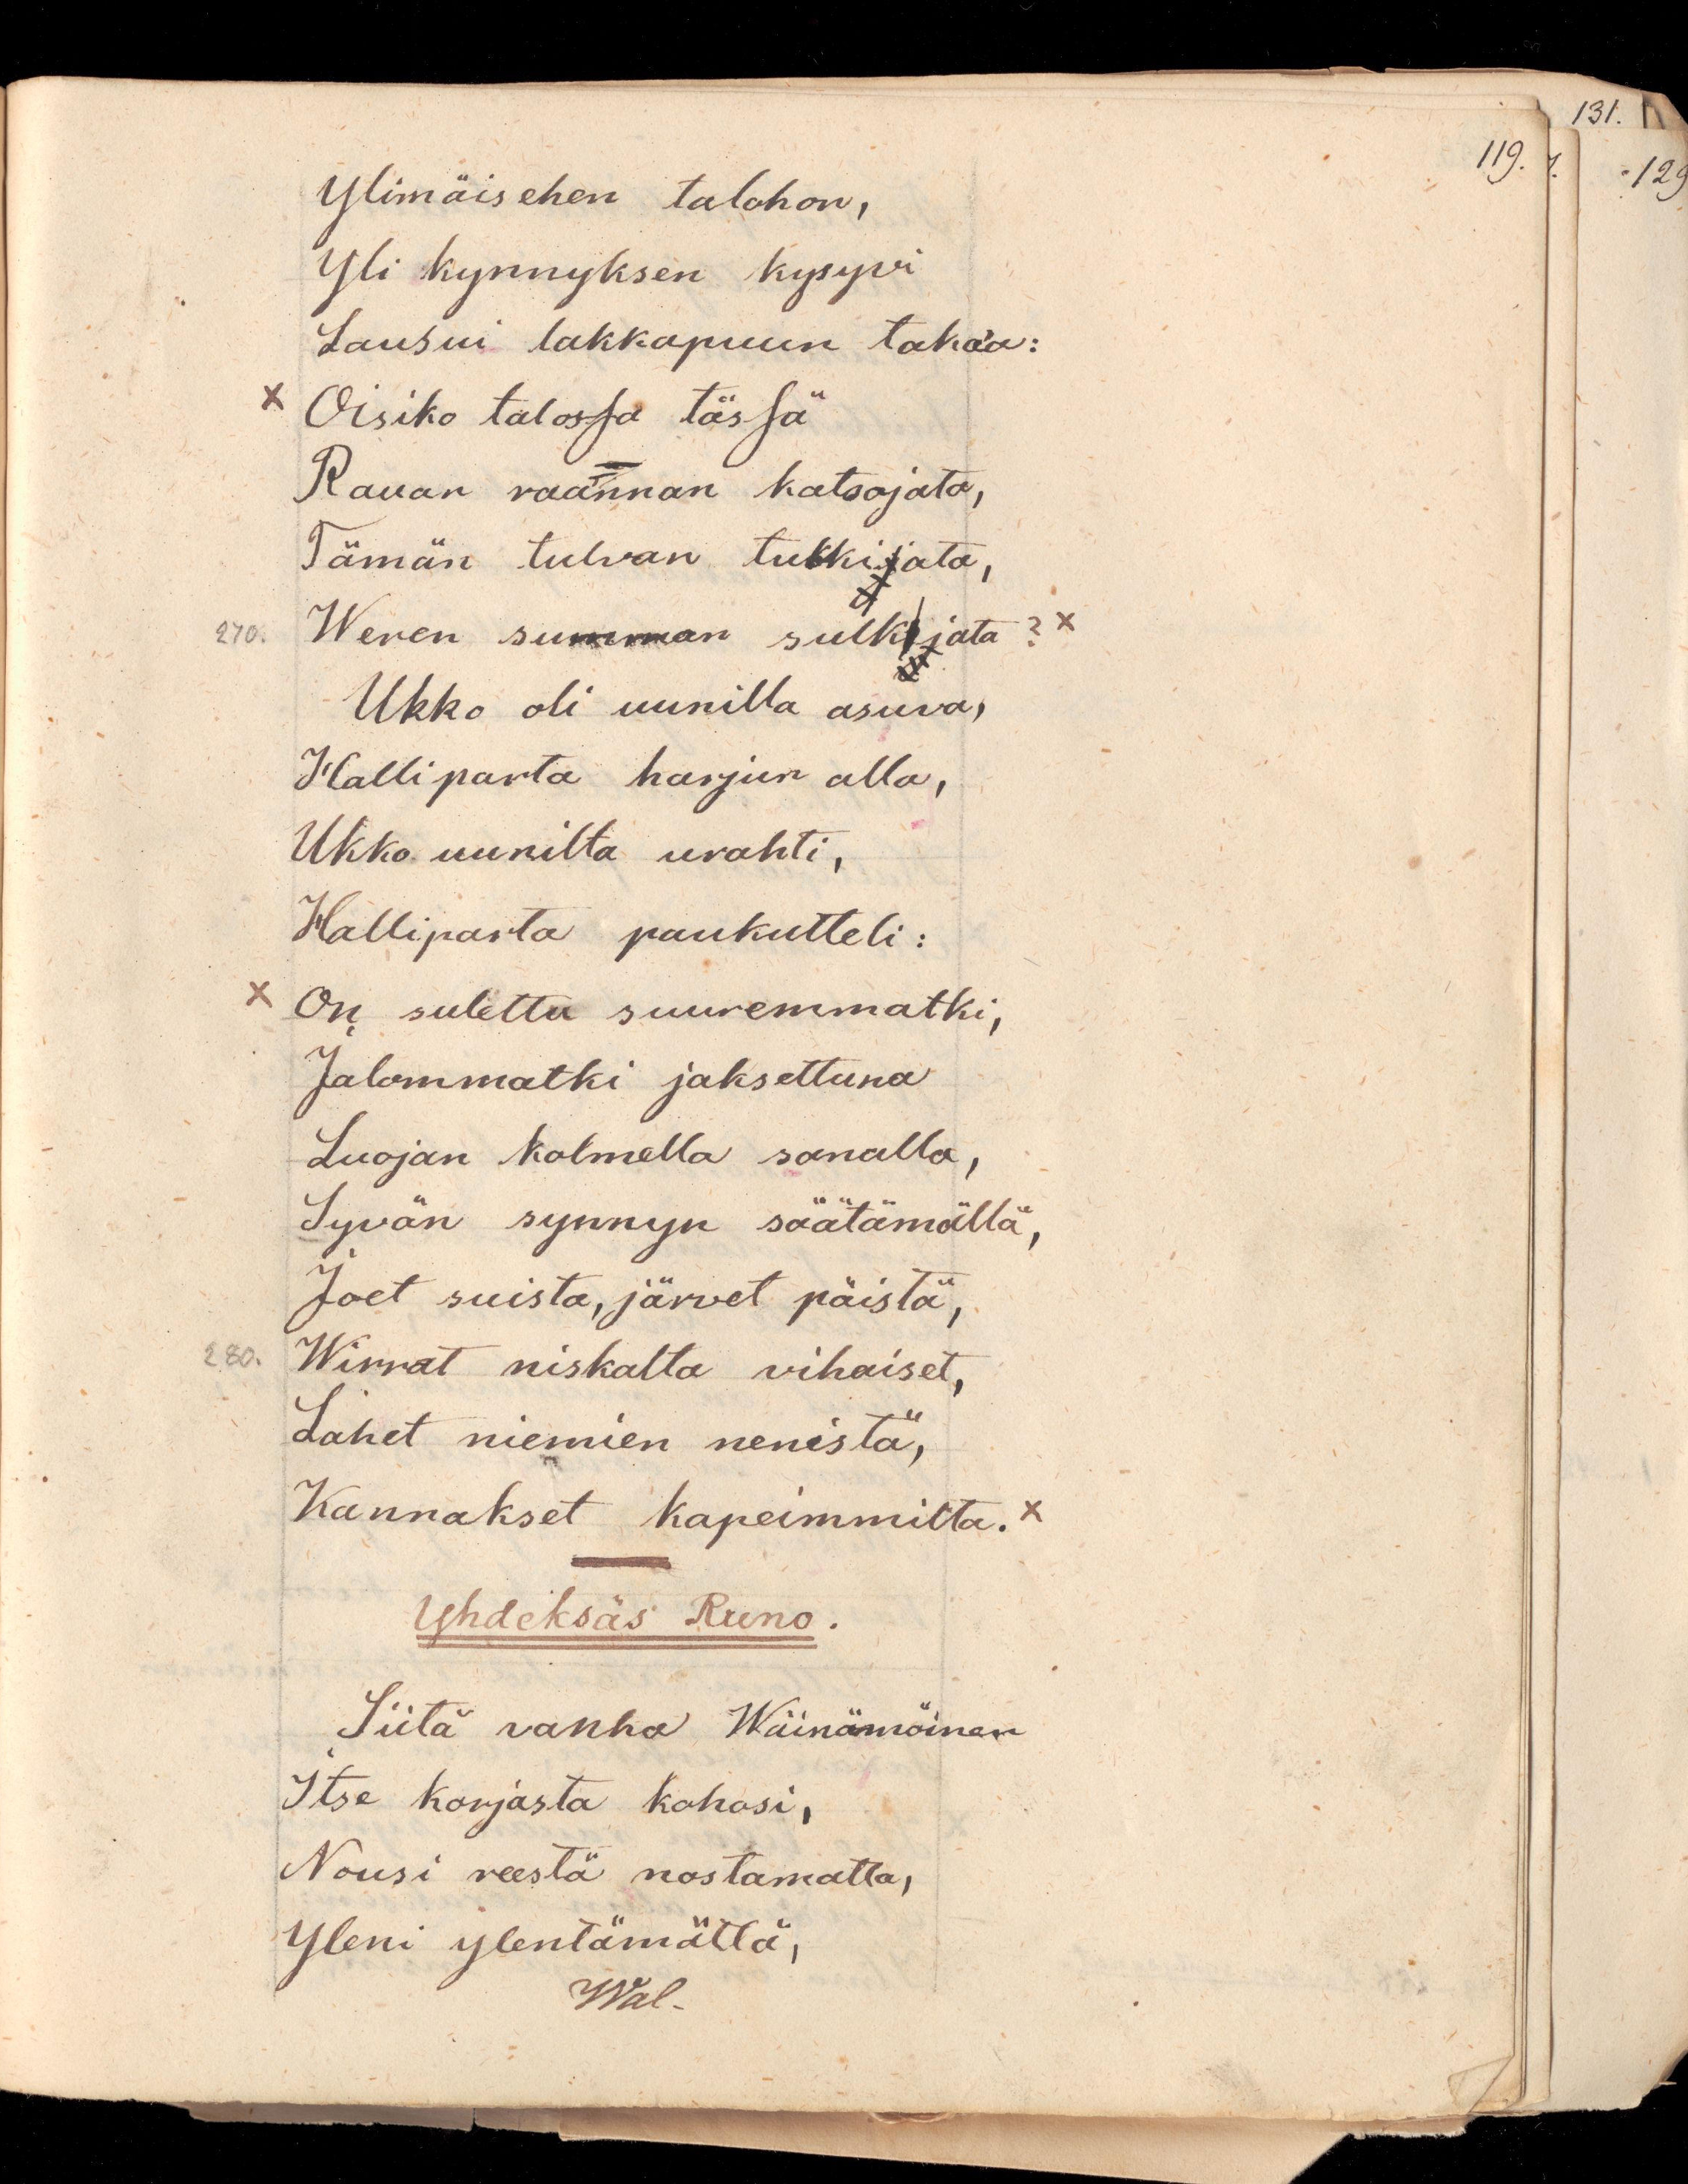 131.
119.
129
Ylimäisehen talohon,
Yli kynnyksen kysyvi
Lausui lakkapuun takaa:
x Oisiko talossa tässä
Rauan raannan katsojata,
Tämän tulvan tukkijata,
270. Weren summan sulkijata? x
Ukko oli uunilla asuva,
Halliparta harjun alla,
Ukko uunilta urahti,
Halliparta paukutteli:
x On suletta suuremmatki,
Jalommatki jaksettuna
Luojan kolmella sanalla,
Syvän synnyn säätämällä,
Joet suista, järvet päistä,
280. Wirrat niskalta vihaiset,
Lahet niemien nenistä,
Kannakset kapeimmilta. x
Yhdeksäs Runo.
Siitä vanha Wäinämöinen
Itse korjasta kohosi,
Nousi reestä nostamatta,
Yleni ylentämättä,
Wal-